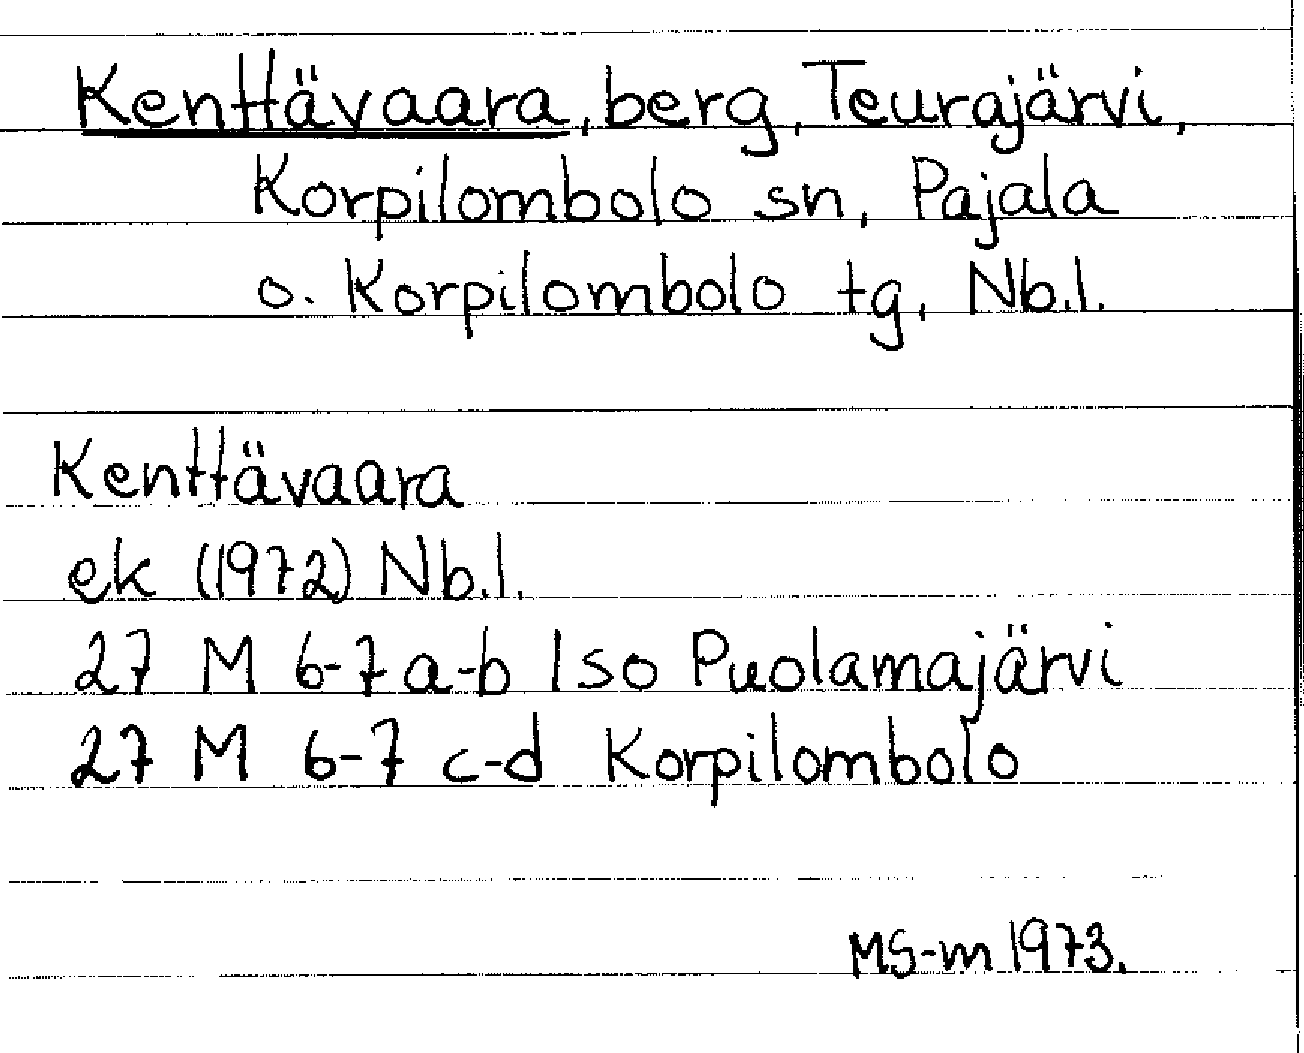 Kenttävaara, berg, Teurajärvi,
Korpilombolo sn, Pajala
o. Korpilombolo tg, Nb.l.
Kenttävaara
ek (1972) Nb.l.
27 M 6-7 a-b Iso Puolamajärvi
27 M 6-7 c-d Korpilombolo
MS-m 1973.